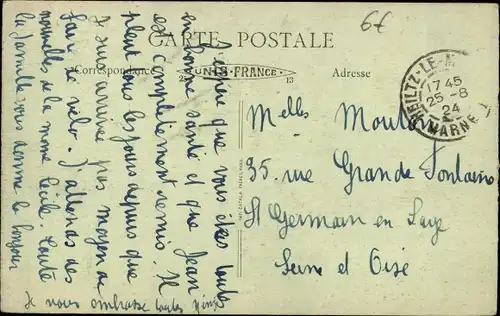 6€
CARTE POSTALE
Correspondance
UNIS-FRANCE
Adresse
13
HEILTZ-LE-M
17 45
25-8
24
MARNE
J'espère que vous êtes toutes
en bonne santé et que Jean
est complètement remis. Il
pleut tous les jours depuis que
je suis arrivée, pas moyen de
faire de vélo. J'attends des
nouvelles de la mone Cécile. Toute
la famille vous donne le bonjour
Je vous embrasse toutes
Melles Moulin
35. rue Grande Fontaine
St Germain en Laye
Seine et Oise